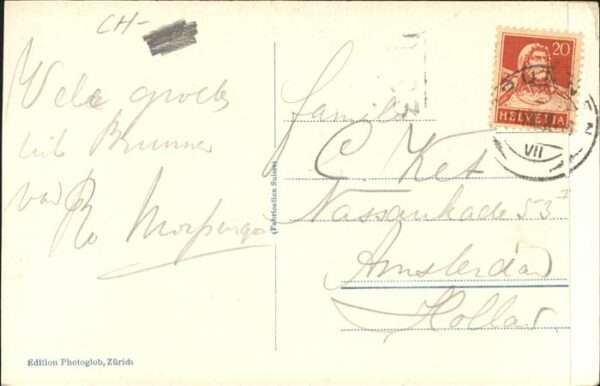 CH-
Vele groete
uit Brunnen
van Ro Morpurgo
Familie
C. Ket
Nassaukade 53 I
Amsterdam
Holland
20
HELVETIA
VII
(Fabrication Suisse)
Edition Photoglob, Zürich